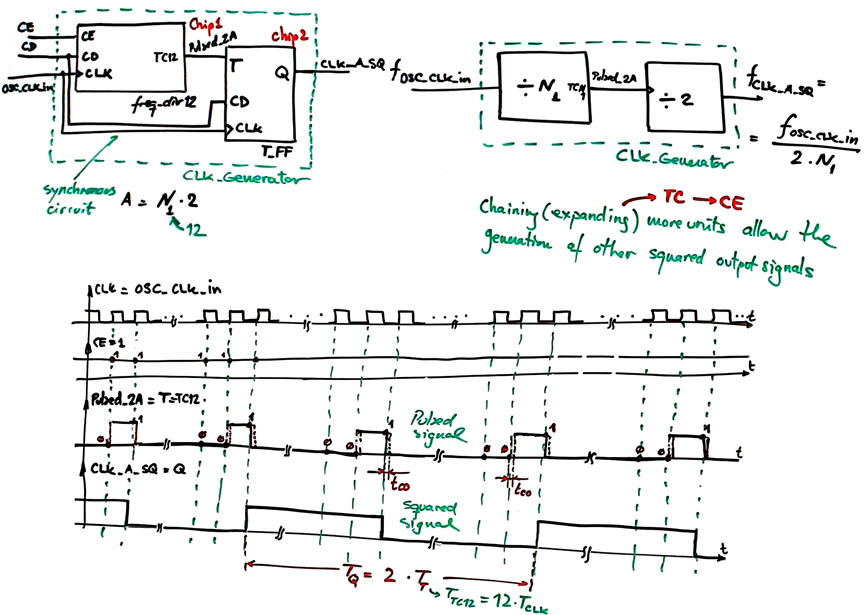 Chip1
CE
CE
Pulsed_2A
chip2
CD
CD
TC12
T
Q
CLK_A_SQ
OSC_CLK_in
CLK
freq_div_12
CD
CLK
T_FF
CLK_Generator
synchronous
circuit
A = N1 · 2
12
fOSC_CLK_in
÷ N1
TCN1
Pulsed_2A
÷ 2
fCLK_A_SQ =
= fOSC_CLK_in
2 · N1
CLK_Generator
TC → CE
Chaining (expanding) more units allow the
generation of other squared output signals
CLK = OSC_CLK_in
t
CE = 1
1 1 1 1
t
Pulsed_2A = T = TC12
Pulsed
signal
0 1 0 0 1 0 0 1 0 0 1 0 0 1
t
tCO
tCO
CLK_A_SQ = Q
Squared
signal
t
TQ = 2 · TT
TTC12 = 12 · TCLK